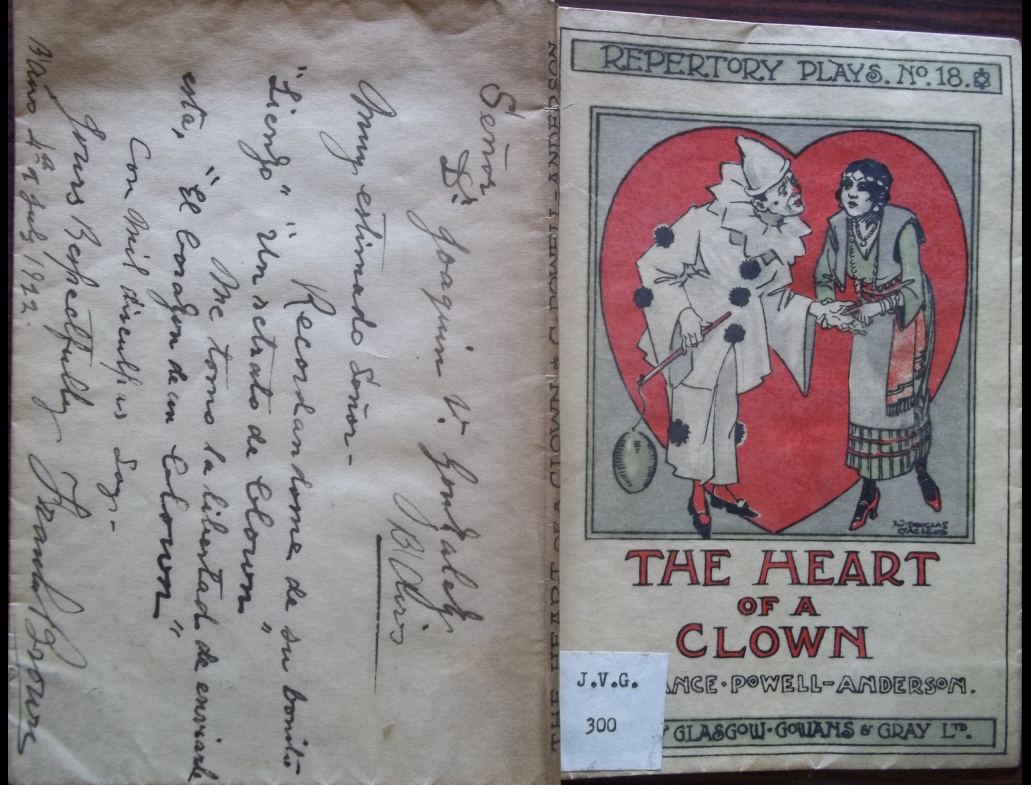 Señor
Dr Joaquin V. Gonzalez
B Aires
Muy estimado Señor -
Recordandome de su bonito
"Lienzo" "Un retrato de Clown"
Me tomo la libertad de enviarle
esta, "El Corazon de un Clown"
Con mil disculpas Soy -
Yours Respectfully
Brown
4th July 1922.
THE HEART OF A CLOWN POWELL-ANDERSON
REPERTORY PLAYS. No. 18.
W. DOUGLAS
MACLEOD
THE HEART
OF A
CLOWN
ANCE · POWELL-ANDERSON.
J.V.G.
300
GLASGOW · GOWANS & GRAY LTD.